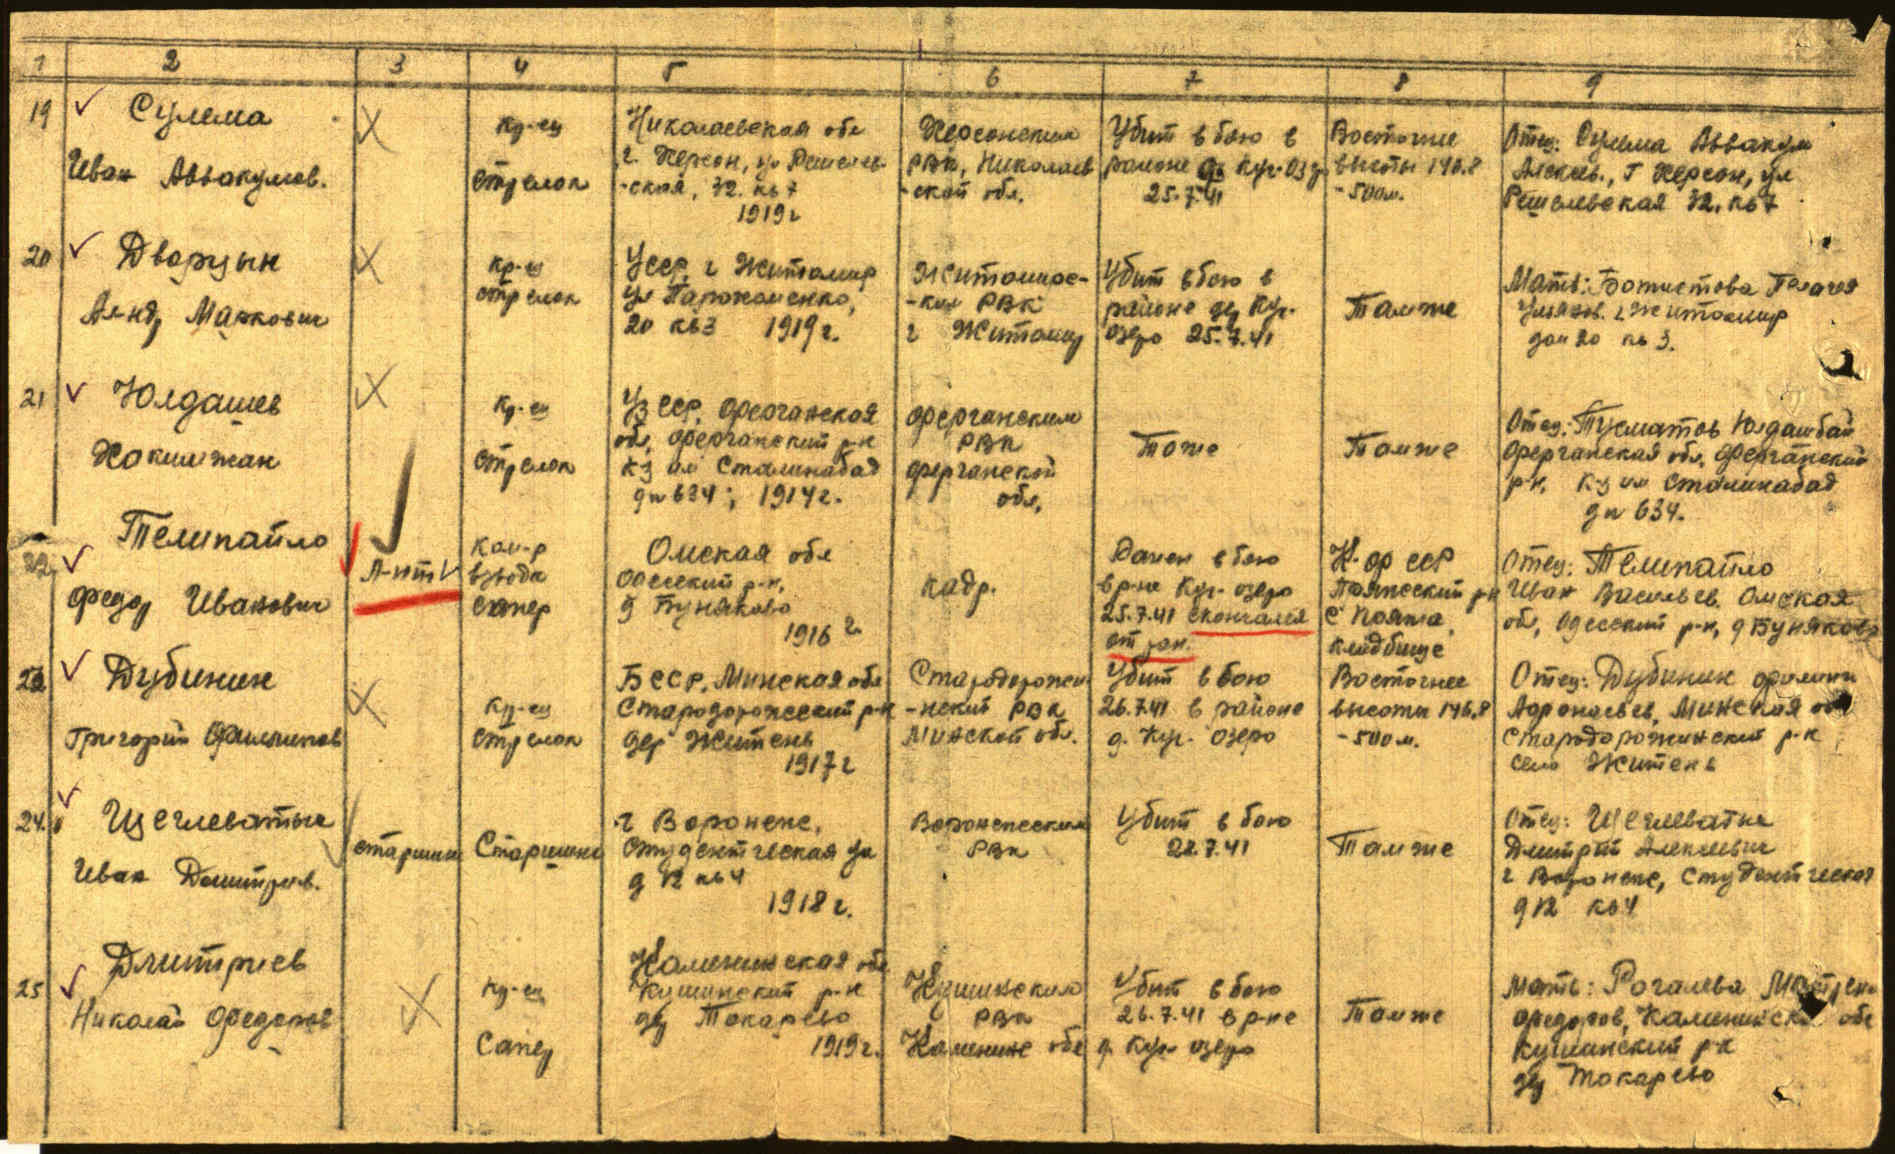 1 2 3 4 5 6 7 8 9
19 Сулема
Иван Аввакумов.
Кр-ец
стрелок
Николаевская обл
г. Херсон, ул Решельев
-ская, 32. кв 7
1919 г
Херсонским
РВК, Николаев
-ской обл.
Убит в бою в
районе Куг-Оз
25.7.41
Восточнее
высоты 146.8
-500м.
Отец: Сулема Аввакум
Алексеев., г Херсон, ул
Решельевская 32, кв 7
20 Дворцын
Алнд Маркович
Кр-ец
стрелок
УССР, г Житомир
ул Пархоменко,
20 кв 3 1919 г.
Житомирс-
-ким РВК
г Житомир
Убит в бою в
районе де Куг-
озеро 25.7.41
Там же
Мать: Полагея
г Житомир
дом 20 кв 3.
21 Юлдашев
Хокимжан
Кр-ец
стрелок
Уз ССР, Ферганская
обл, Ферганский р-н
к-з им Сталинабад
дм 634; 1914 г.
Ферганским
РВК
Ферганской
обл.
Тоже
Там же
Отец: Тусматов Юлдашбай
Ферганская обл, Ферганский
р-н, к-з им Сталинабад
дм 634.
22 Телипайло
Федор Иванович
Л-нт
Ком-р
взвода
сапер
Омская обл
Одесский р-н,
д Буняково
1916 г
кадр.
Ранен в бою
в р-не Куг-озеро
25.7.41 скончался
от ран.
К-Ф ССР
р-н
с Пояма
кладбище
Отец: Телипайло
Иван Васильев. Омская
обл, Одесский р-н, д Буняково
23 Дубинин
Григорий Филиппов
Кр-ец
стрелок
БССР, Минская обл
Стародорожский р-н
дер Житень
1917 г
Стародорожи
-нский РВК
Минской обл.
Убит в бою
26.7.41 в районе
д. Куг- озеро
Восточнее
высоты 146,8
-500м.
Отец: Дубинин Филипп
Афронасьев, Минская обл
Стародорожинский р-н
село Житень
24. Щеглеватых
Иван Дмитров.
старшин
Старшина
г Воронеж,
студентческая ул
д 12 кв 4
1918 г.
Воронежским
РВК
Убит в бою
28.7.41
Там же
Отец: Щеглеватых
Дмитрий Алексеевич
г Воронеж, Студентческая
д 12 кв 4
25 Дмитриев
Николай Федоров
Кр-ец
Сапер
Калининская обл
Кушинский р-н
дер Токарево
1919 г.
Кушинским
РВК
Калининс обл
Убит в бою
26.7.41 в р-не
д. Куг- озеро
Там же
Мать: Рогалева Матрена
Федоров, Калининска обл
Кушинский р-н
дер Токарево